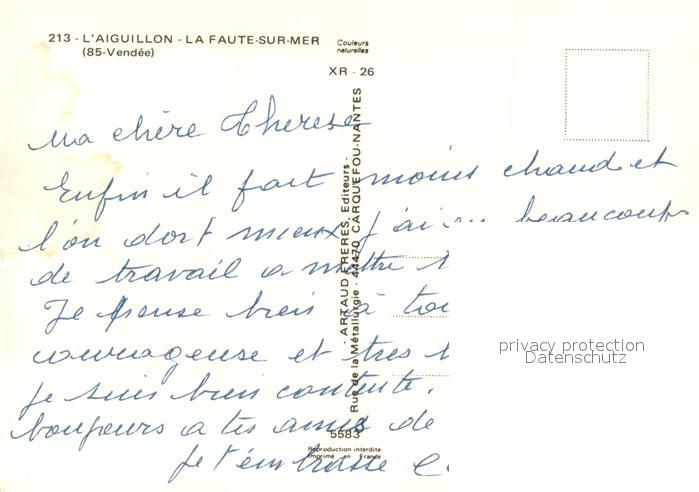 213 - L'AIGUILLON - LA FAUTE-SUR-MER
(85-Vendée)
Couleurs
naturelles
XR - 26
Ma chère Therese
Enfin il fait moins chaud et
l'on dort mieux j'ai eu beaucoup
de travail a mettre
Je pense bien à toi
courageuse et très
je suis bien contente.
bonjours a tes amis de
je t'embrasse
- ARTAUD FRERES, Editeurs -
Rue de la Métallurgie - 44470 CARQUEFOU-NANTES
5583
Reproduction interdite
Imprimé en France
privacy protection
Datenschutz